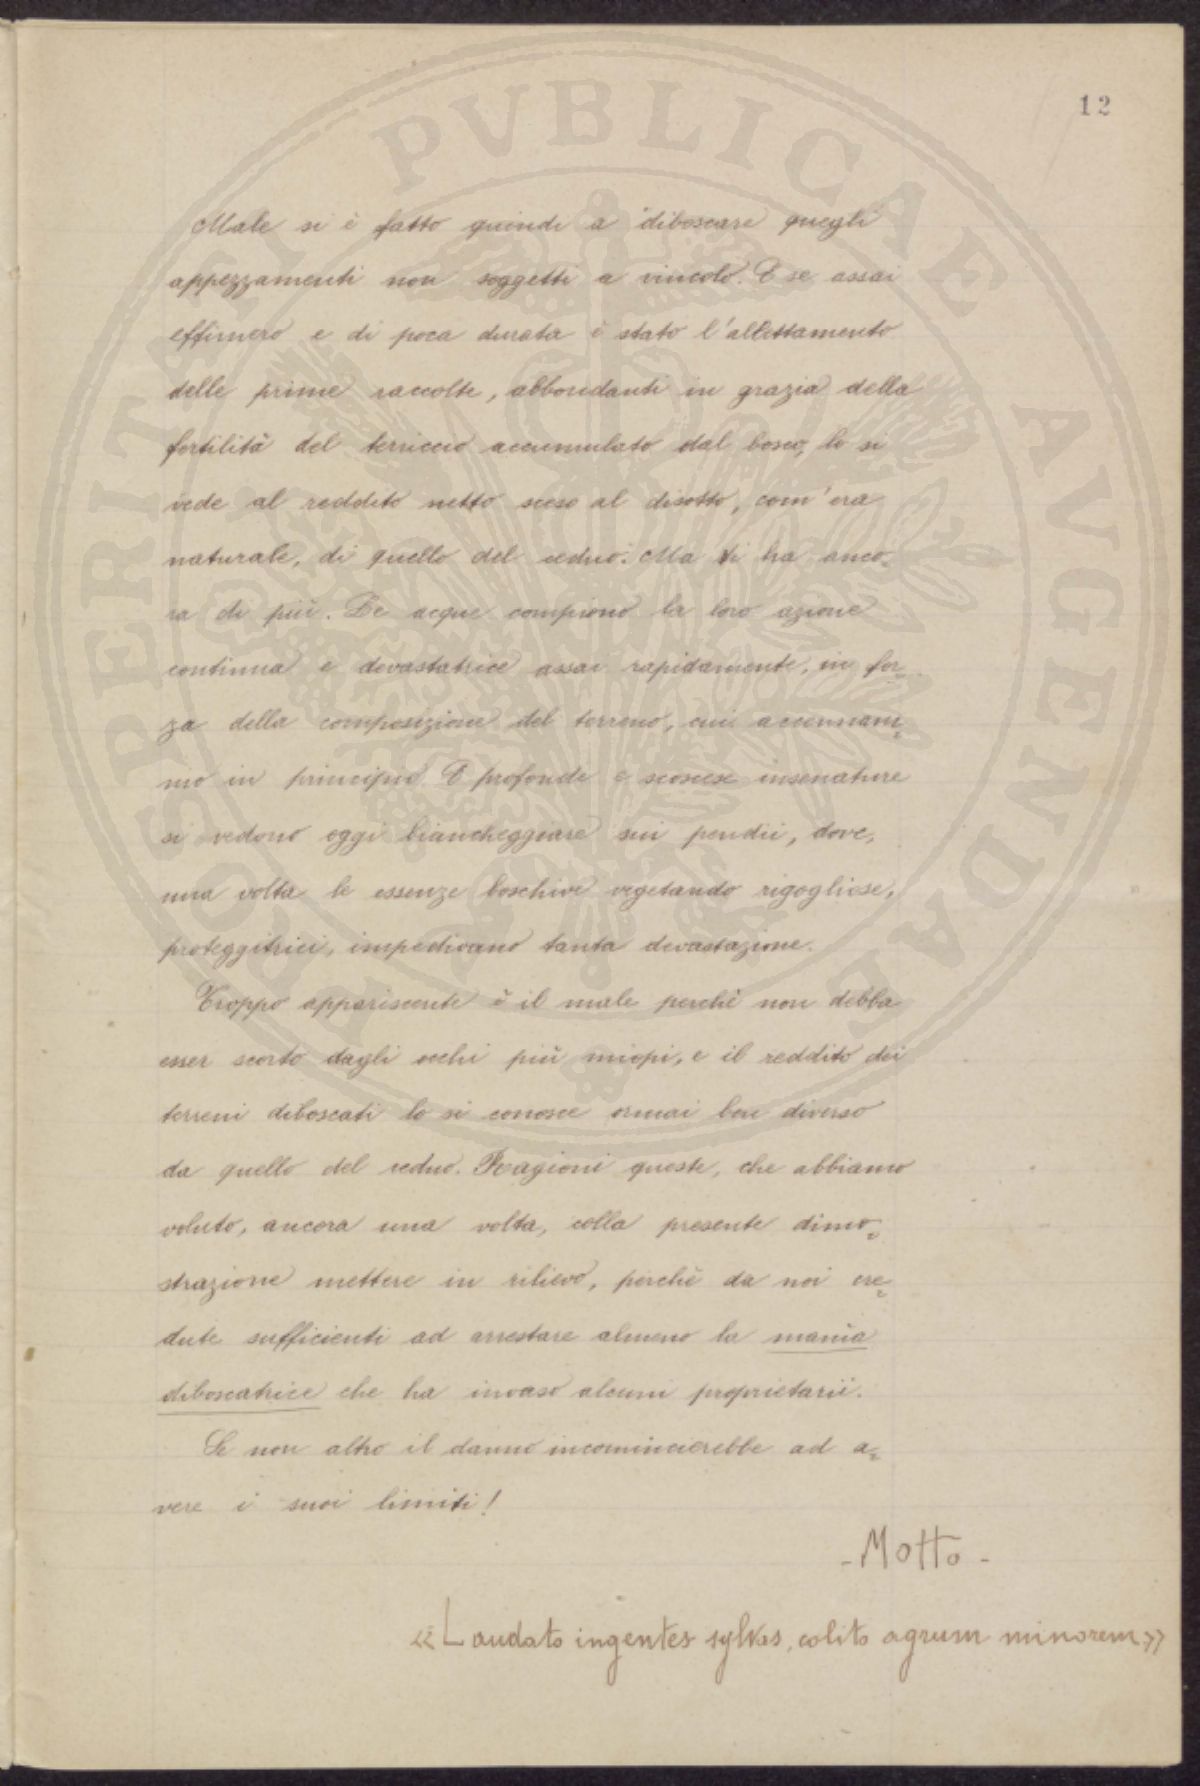 12
Male si è fatto quindi a diboscare quegli
appezzamenti non soggetti a vincolo. E se assai
effimero e di poca durata è stato l'allettamento
delle prime raccolte, abbondanti in grazia della
fertilità del terriccio accumulato dal bosco, lo si
vede al reddito netto sceso al disotto, com'era
naturale, di quello del ceduo. Ma vi ha anco-
ra di più. Le acque compiono la loro azione
continua e devastatrice assai rapidamente, in for-
za della composizione del terreno, cui accennam-
mo in principio. E profonde e scoscese insenature
si vedono oggi biancheggiare sui pendii, dove,
una volta le essenze boschive vegetando rigogliose,
proteggitrici, impedivano tanta devastazione.
Troppo appariscente è il male perchè non debba
esser scorto dagli occhi più miopi, e il reddito dei
terreni diboscati lo si conosce ormai ben diverso
da quello del ceduo. Ragioni queste, che abbiamo
voluto, ancora una volta, colla presente dimo-
strazione mettere in rilievo, perchè da noi cre-
dute sufficienti ad arrestare almeno la mania
diboscatrice che ha invaso alcuni proprietarii.
Se non altro il danno incomincierebbe ad a-
vere i suoi limiti!
- Motto -
«Laudato ingentes sylvas, colito agrum minorem»
PROSPERITATI PVBLICAE AVGENDAE